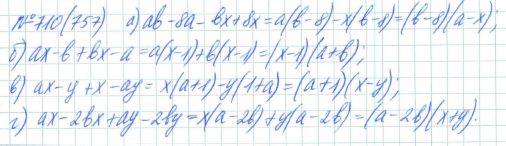 №710(757) а) ab-8a-bx+8x=a(b-8)-x(b-8)=(b-8)(a-x);
б) ax-b+bx-a=a(x-1)+b(x-1)=(x-1)(a+b);
в) ax-y+x-ay=x(a+1)-y(1+a)=(a+1)(x-y);
г) ax-2bx+ay-2by=x(a-2b)+y(a-2b)=(a-2b)(x+y).